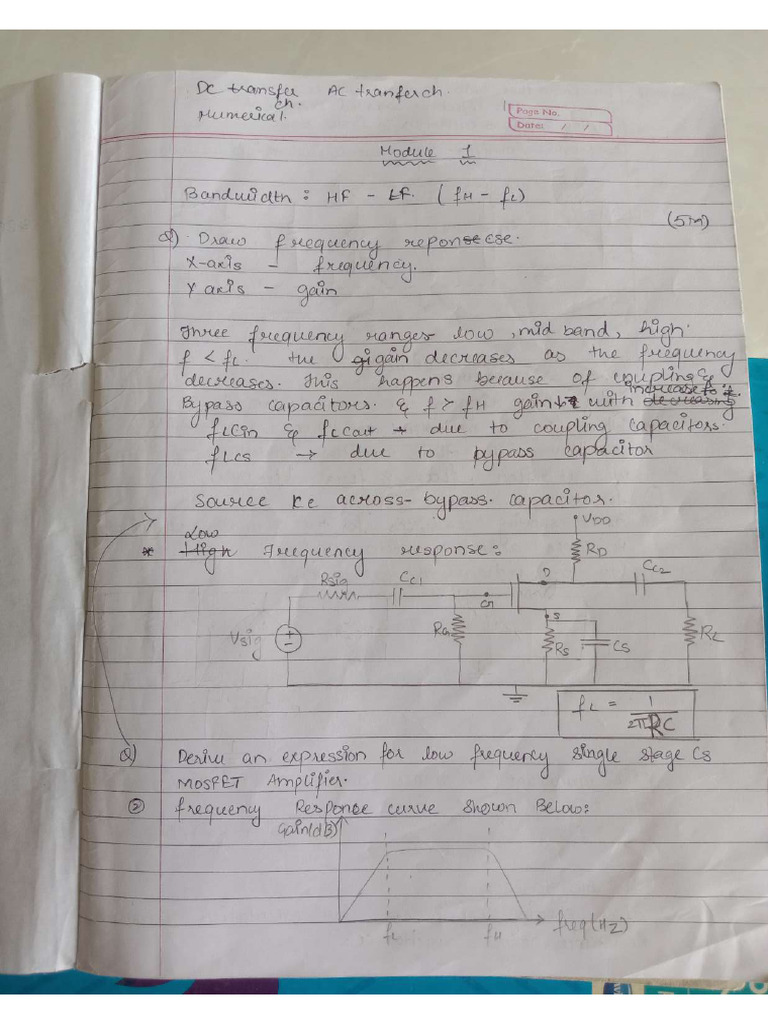 DC transfer AC tranferch.
ch.
Numerical.
Page No.
Date: / /
Module 1
Bandwidth : HF - LF. ( fH - fL)
(5m)
Q) Draw frequency reponsecse.
X-axis - frequency.
Y axis - gain
Three frequency ranges low, mid band, high.
f < fL. the gain decreases as the frequency
decreases. This happens because of coupling &
increase to f.
Bypass capacitors. & f > fH gain ↓ with decreasing
fLCin & fLCout → due to coupling capacitors.
fLCS → due to bypass capacitor
Source across-bypass. capacitor.
Low
* High Frequency response:
VDD
RD
Rsig CC1 D CC2
G
Vsig RG S RS CS RL
fL = 1
2πRC
Q) Derive an expression for low frequency single stage CS
MOSFET Amplifier.
② frequency Response curve Shown Below:
Gain(dB)
freq(HZ)
fL fH